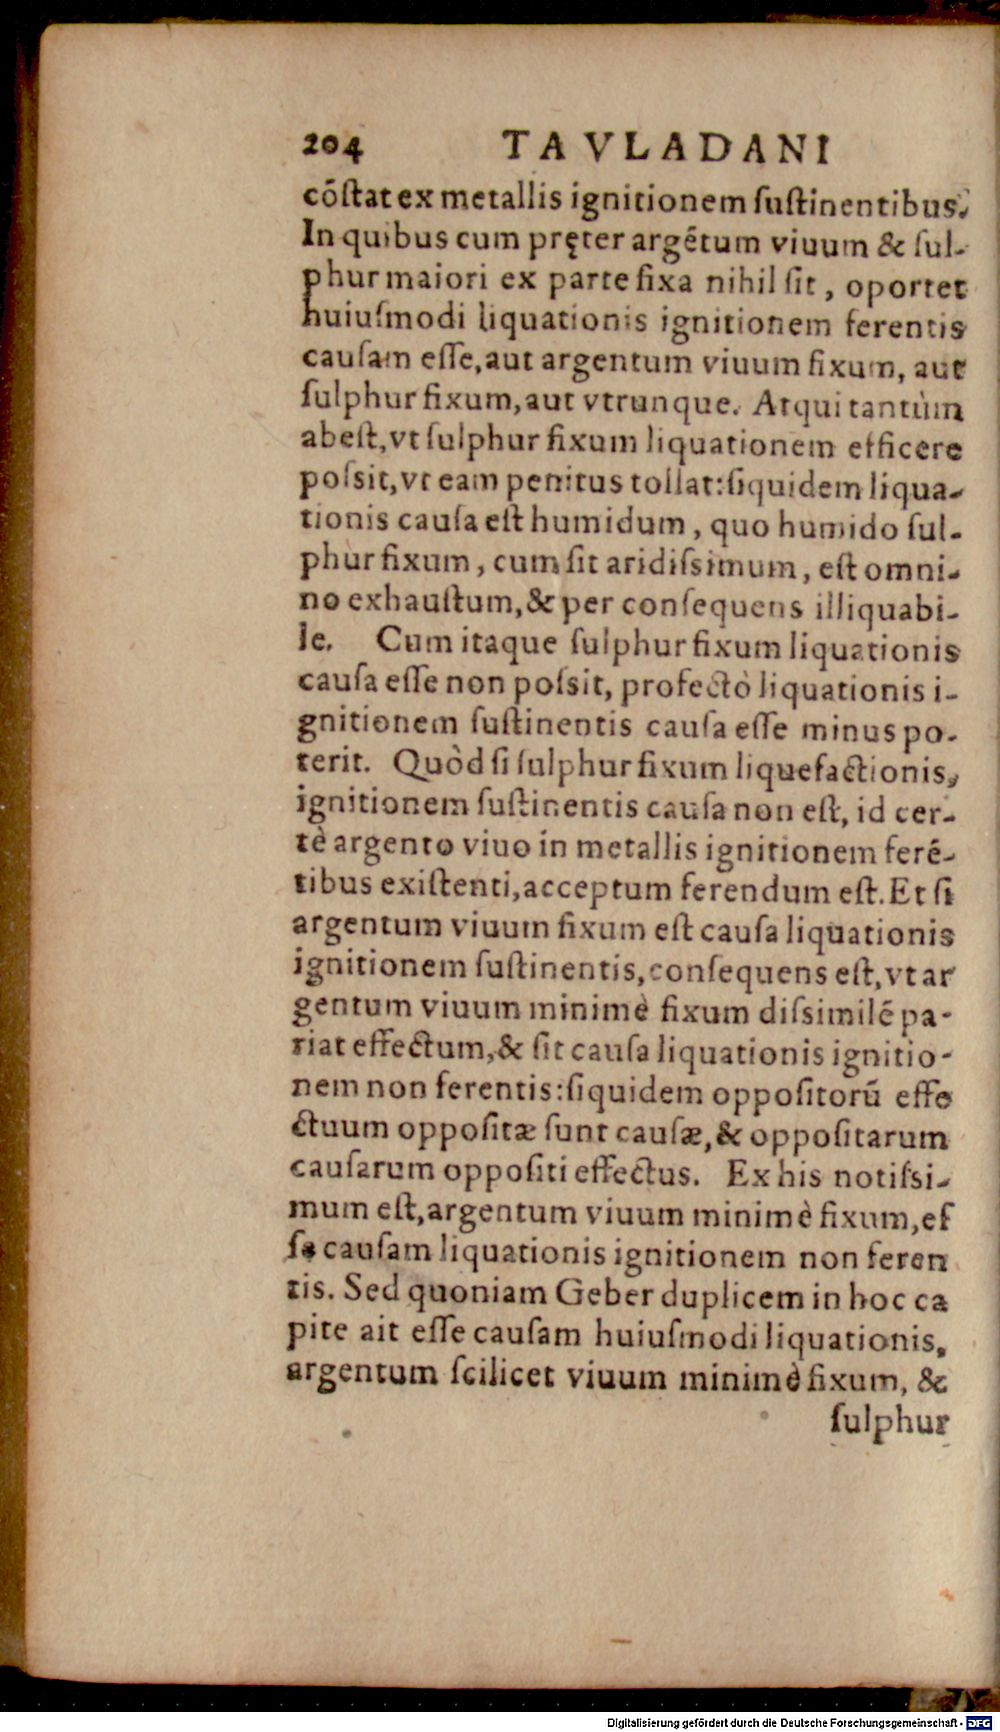 204 TAVLADANI
cõſtat ex metallis ignitionem ſuſtinentibus.
In quibus cum pręter argẽtum viuum & ſul-
phur maiori ex parte fixa nihil ſit, oportet
huiuſmodi liquationis ignitionem ferentis
cauſam eſſe, aut argentum viuum fixum, aut
ſulphur fixum, aut vtrunque. Atqui tantùm
abeſt, vt ſulphur fixum liquationem efficere
poſsit, vt eam penitus tollat: ſiquidem liqua-
tionis cauſa eſt humidum, quo humido ſul-
phur fixum, cum ſit aridiſsimum, eſt omni-
no exhauſtum, & per conſequens illiquabi-
le. Cum itaque ſulphur fixum liquationis
cauſa eſſe non poſsit, profectò liquationis i-
gnitionem ſuſtinentis cauſa eſſe minus po-
terit. Quòd ſi ſulphur fixum liquefactionis,
ignitionem ſuſtinentis cauſa non eſt, id cer-
tè argento viuo in metallis ignitionem ferẽ-
tibus exiſtenti, acceptum ferendum eſt. Et ſi
argentum viuum fixum eſt cauſa liquationis
ignitionem ſuſtinentis, conſequens eſt, vt ar
gentum viuum minimè fixum diſsimilẽ pa-
riat effectum, & ſit cauſa liquationis ignitio-
nem non ferentis: ſiquidem oppoſitorũ effe
ctuum oppoſitæ ſunt cauſæ, & oppoſitarum
cauſarum oppoſiti effectus. Ex his notiſsi-
mum eſt, argentum viuum minimè fixum, eſ
ſe cauſam liquationis ignitionem non feren
tis. Sed quoniam Geber duplicem in hoc ca
pite ait eſſe cauſam huiuſmodi liquationis,
argentum ſcilicet viuum minimè fixum, &
ſulphur
Digitalisierung gefördert durch die Deutsche Forschungsgemeinschaft - DFG